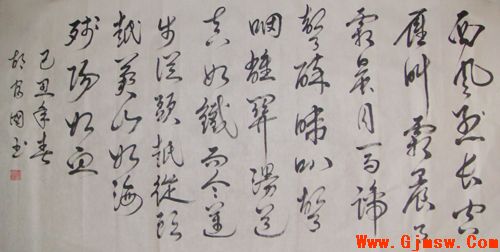 西风烈长空
雁叫霜晨月
霜晨月马蹄
声碎喇叭声
咽雄关漫道
真如铁而今迈
步从头越从头
越苍山如海
残阳如血
己丑年春
国书
Www.Gjmsw.Com